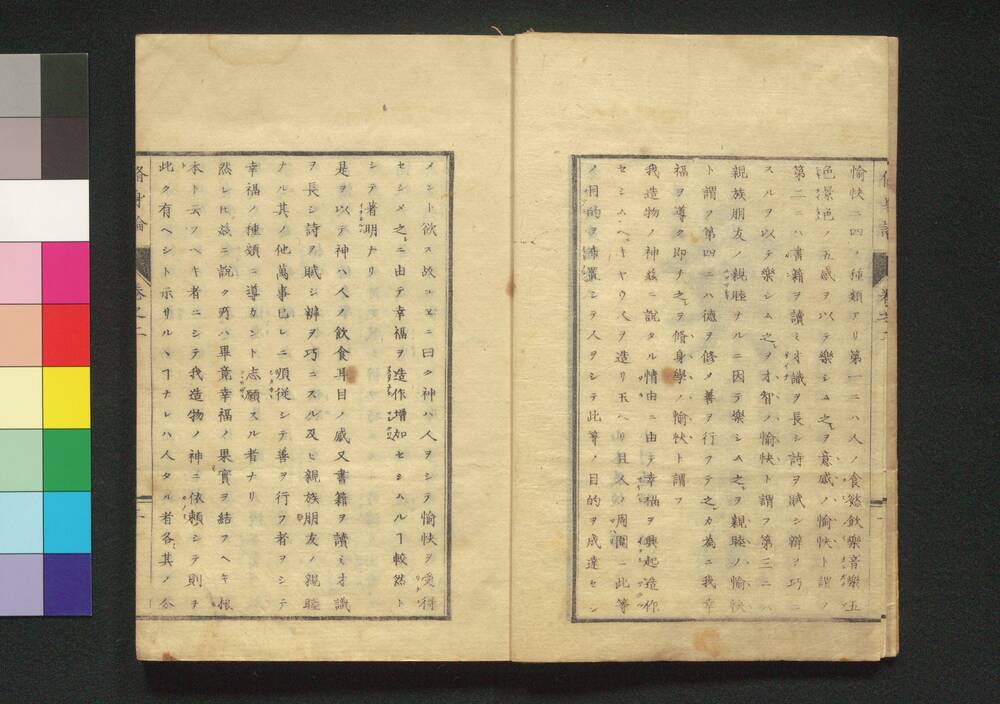 愉快ニ四ノ種類アリ第一ニハ人ノ食慾飲樂音樂五
色景色ノ五感ヲ以テ樂シム之ヲ意感ノ愉快ト謂フ
第二ニハ書籍ヲ讀ミ才識ヲ長シ詩ヲ賦シ辯ヲ巧ニ
スルヲ以テ樂シム之ヲ才智ノ愉快ト謂フ第三ニハ
親族朋友ノ親睦ナルニ因テ樂シム之ヲ親睦ノ愉快
ト謂フ第四ニハ德ヲ修メ善ヲ行フテ之カ為ニ我幸
福ヲ導ク即チ之ヲ脩身學ノ愉快ト謂フ
我造物ノ神茲ニ說タル情由ニ由テ幸福ヲ興起造作
セシムヘキヤウ人ヲ造リ玉ヘリ且人ノ周圍ニ此等
ノ目的ヲ布置シテ人ヲシテ此等ノ目的ヲ成達セン
メント欲ス故ニヱニ曰ク神ハ人ヲシテ愉快ヲ受得
セシメ之ニ由テ幸福ヲ造作增加セシムル丁較然ト
シテ著明ナリ
是ヲ以テ神ハ人ノ飲食耳目ノ感又書籍ヲ讀ミ才識
ヲ長シ詩ヲ賦シ辯ヲ巧ニスル及ヒ親族朋友ノ親睦
ナル其ノ他萬事已レニ順從シテ善ヲ行フ者ヲシテ
幸福ノ種類ニ導カント志願スル者ナリ
然レ𪜈茲ニ說ク所ハ畢竟幸福ノ果實ヲ結フヘキ根
本ト云フヘキ者ニシテ我造物ノ神ニ依賴シテ則ヲ
此ク有ヘシト示サルヽ丁ナレハ人タル者各其ノ分
脩身論 卷之二